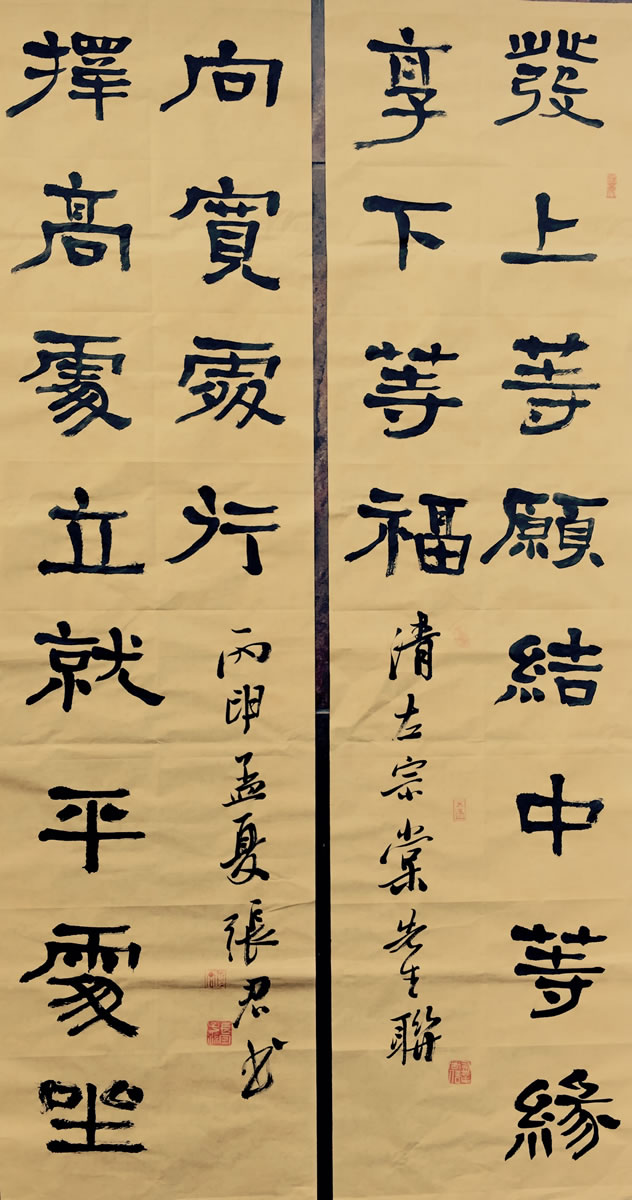 發上等願結中等緣
享下等福
清左宗棠先生聯
擇高處立就平處坐
向寬處行
丙申孟夏張君书